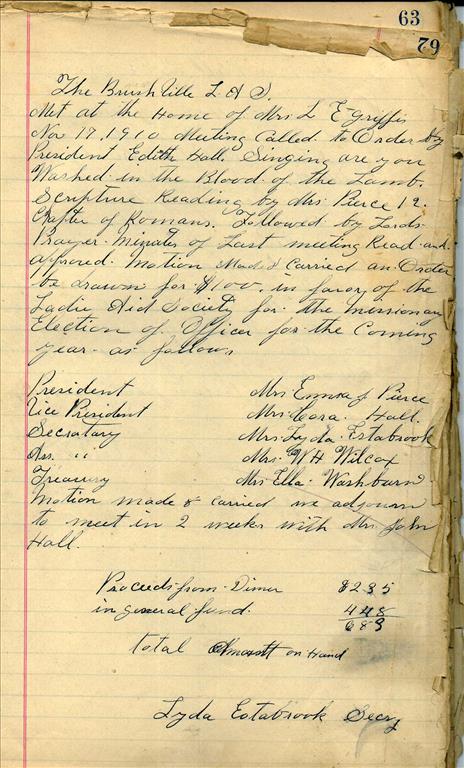 63
79
The Brushville L A S
Met at the Home of Mrs L E Griffis
Nov 17, 1910 Meeting Called to Order by
President Edith Hall. Singing are you
Washed in the Blood of the Lamb.
Scripture Reading by Mrs Pierce 12.
Chapter of Romans. Followed by Lords
Prayer. Minutes of Last meeting Read and
approved. Motion Made & Carried an Order
be drawn for $1.00. in favor of the
Ladie Aid Society for the missionary
Election of Officer for the Coming
year as follows
President Mrs. Emma J Pierce
Vice President Mrs. Cora Hall.
Secratary Mrs. Lyda Estabrook
Ass. " Mrs. W H Wilcox
Treasury Mrs Ella Washburn
Motion made & carried we adjourn
to meet in 2 weeks with Mrs John
Hall.
Proceeds from Dinner $2 35
in general fund. 4 48
6 83
total Amount on Hand
Lyda Estabrook Secry